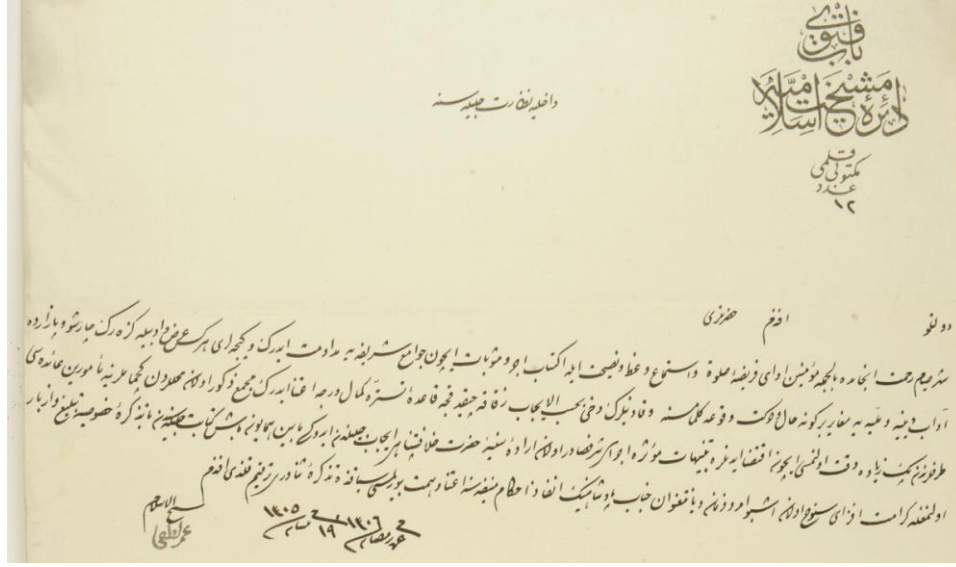 باب فتوى
دائرهٔ مشیخت اسلامیه
مكتوبى قلمى
عدد
١٢
داخلیه نظارت جلیله سنه
دولتلو افندم حضرتلرى
شهر صیام رحمت انجامده بالجمله مؤمنین اداى فریضهٔ صلوة و استماع وعظ و نصیحت ایله اكتساب اجر و مثوبات ایچون جوامع شریفه یه مداومت ایدرك و گیجه لرى هركس عرض و ادبیله گزه رك چارشو و بازارده
آداب دینیه و ملیه یه مغایر بر گونه حال و حركت وقوعه كلمامسنه و قادینلرك دخى بحسب الایجاب زقاقه چیقدقجه قاعدهٔ تستره كمال درجه اعتنا ایدرك مجمع ناس اولان محللردن مأمورین عائده سى
طرفلرندن پك زیاده دقت اولنمسى ایچون اقتضا ایدنلره تنبیهات مؤثره اجراسى شرفصادر اولان ارادهٔ سنیهٔ حضرت خلافتپناهى ایجاب جلیلندن مابین همایون باش كتابت جلیله سندن با تذكرهٔ خصوصیه تبلیغ و ازبار
اولنمغله كرامت افزاى سنوح اولان اشبو امر و فرمان جناب پادشاهینك انفاذ احكام منیفه سنه اعتنا و همت بیورلمسى سیاقنده تذكرهٔ ثناورى ترقیم قلندى افندم
فى غرهٔ رمضان ١٣٠٦ و فى ١٩ نیسان ١٣٠٥
شیخ الاسلام
عمر لطفى